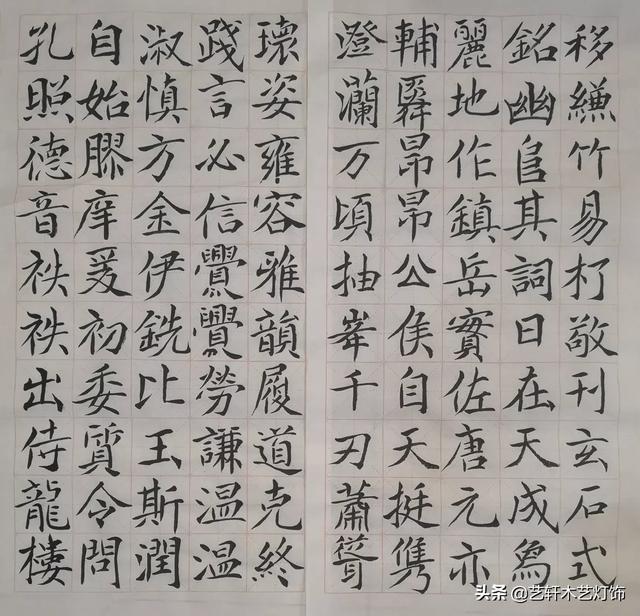 移縑竹易朽敬刊玄石式
銘幽扃其詞曰在天成象
麗地作鎮岳實佐唐元亦
輔舜昂昂公侯自天挺隽
澄瀾万頃抽峯千刃蕭聳
瓌姿雍容雅韻履道克終
踐言必信亹亹勞謙温温
淑慎方金伊銑比玉斯潤
自始膠庠爰初委質令問
孔照德音袟袟出侍龍樓
头条 @艺轩木艺灯饰